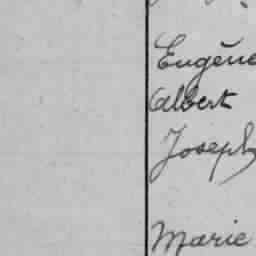 Eugène
Albert
Joseph
Marie